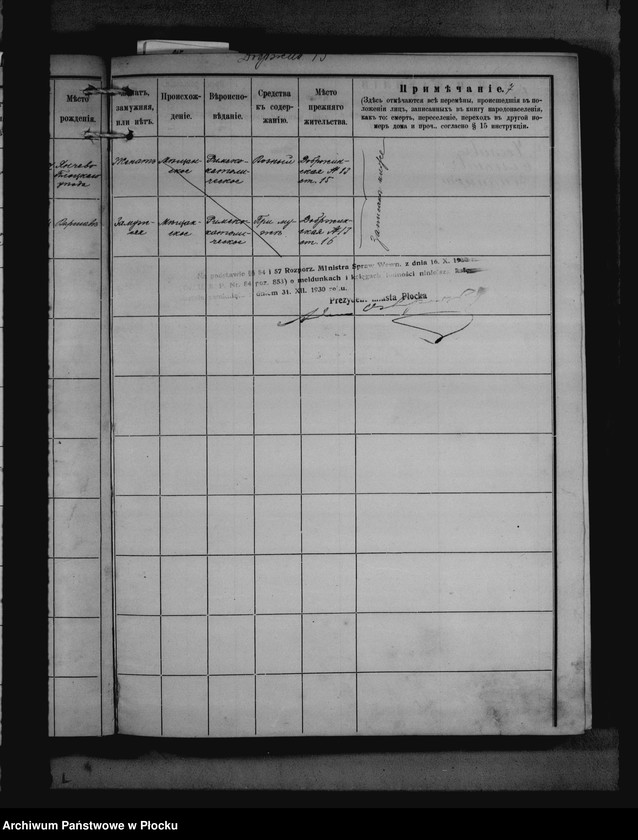 Мѣсто
рожденія.
замужняя,
или нѣтъ.
Происхож-
деніе.
Вѣроиспо-
вѣданіе.
Средства
къ содер-
жанію.
Мѣсто
прежняго
жительства.
Примѣчаніе. 7
(Здѣсь отмѣчаются всѣ перемѣны, происшедшія въ по-
ложеніи лицъ, записанныхъ въ книгу народонаселенія,
какъ то: смерть, переселеніе, переходъ въ другой но-
меръ дома и проч., согласно § 15 инструкціи.
уѣзда
Женатъ
Мѣщан-
ское
Римско-
католи-
ческое
Добржин-
ская № 13
ст. 15
Варшава
Замуж-
няя
Мѣщан-
ское
Римско-
католи-
ческое
При му-
жѣ
Добржин-
ская № 13
ст. 16
Na podstawie §§ 54 i 57 Rozporz. Ministra Spraw Wewn. z dnia 16. X. 1930
Nr. 84 poz. 653) o meldunkach i księgach ludności niniejsz.
dniem 31. XII. 1930 roku.
Prezydent miasta Płocka
Archiwum Państwowe w Płocku